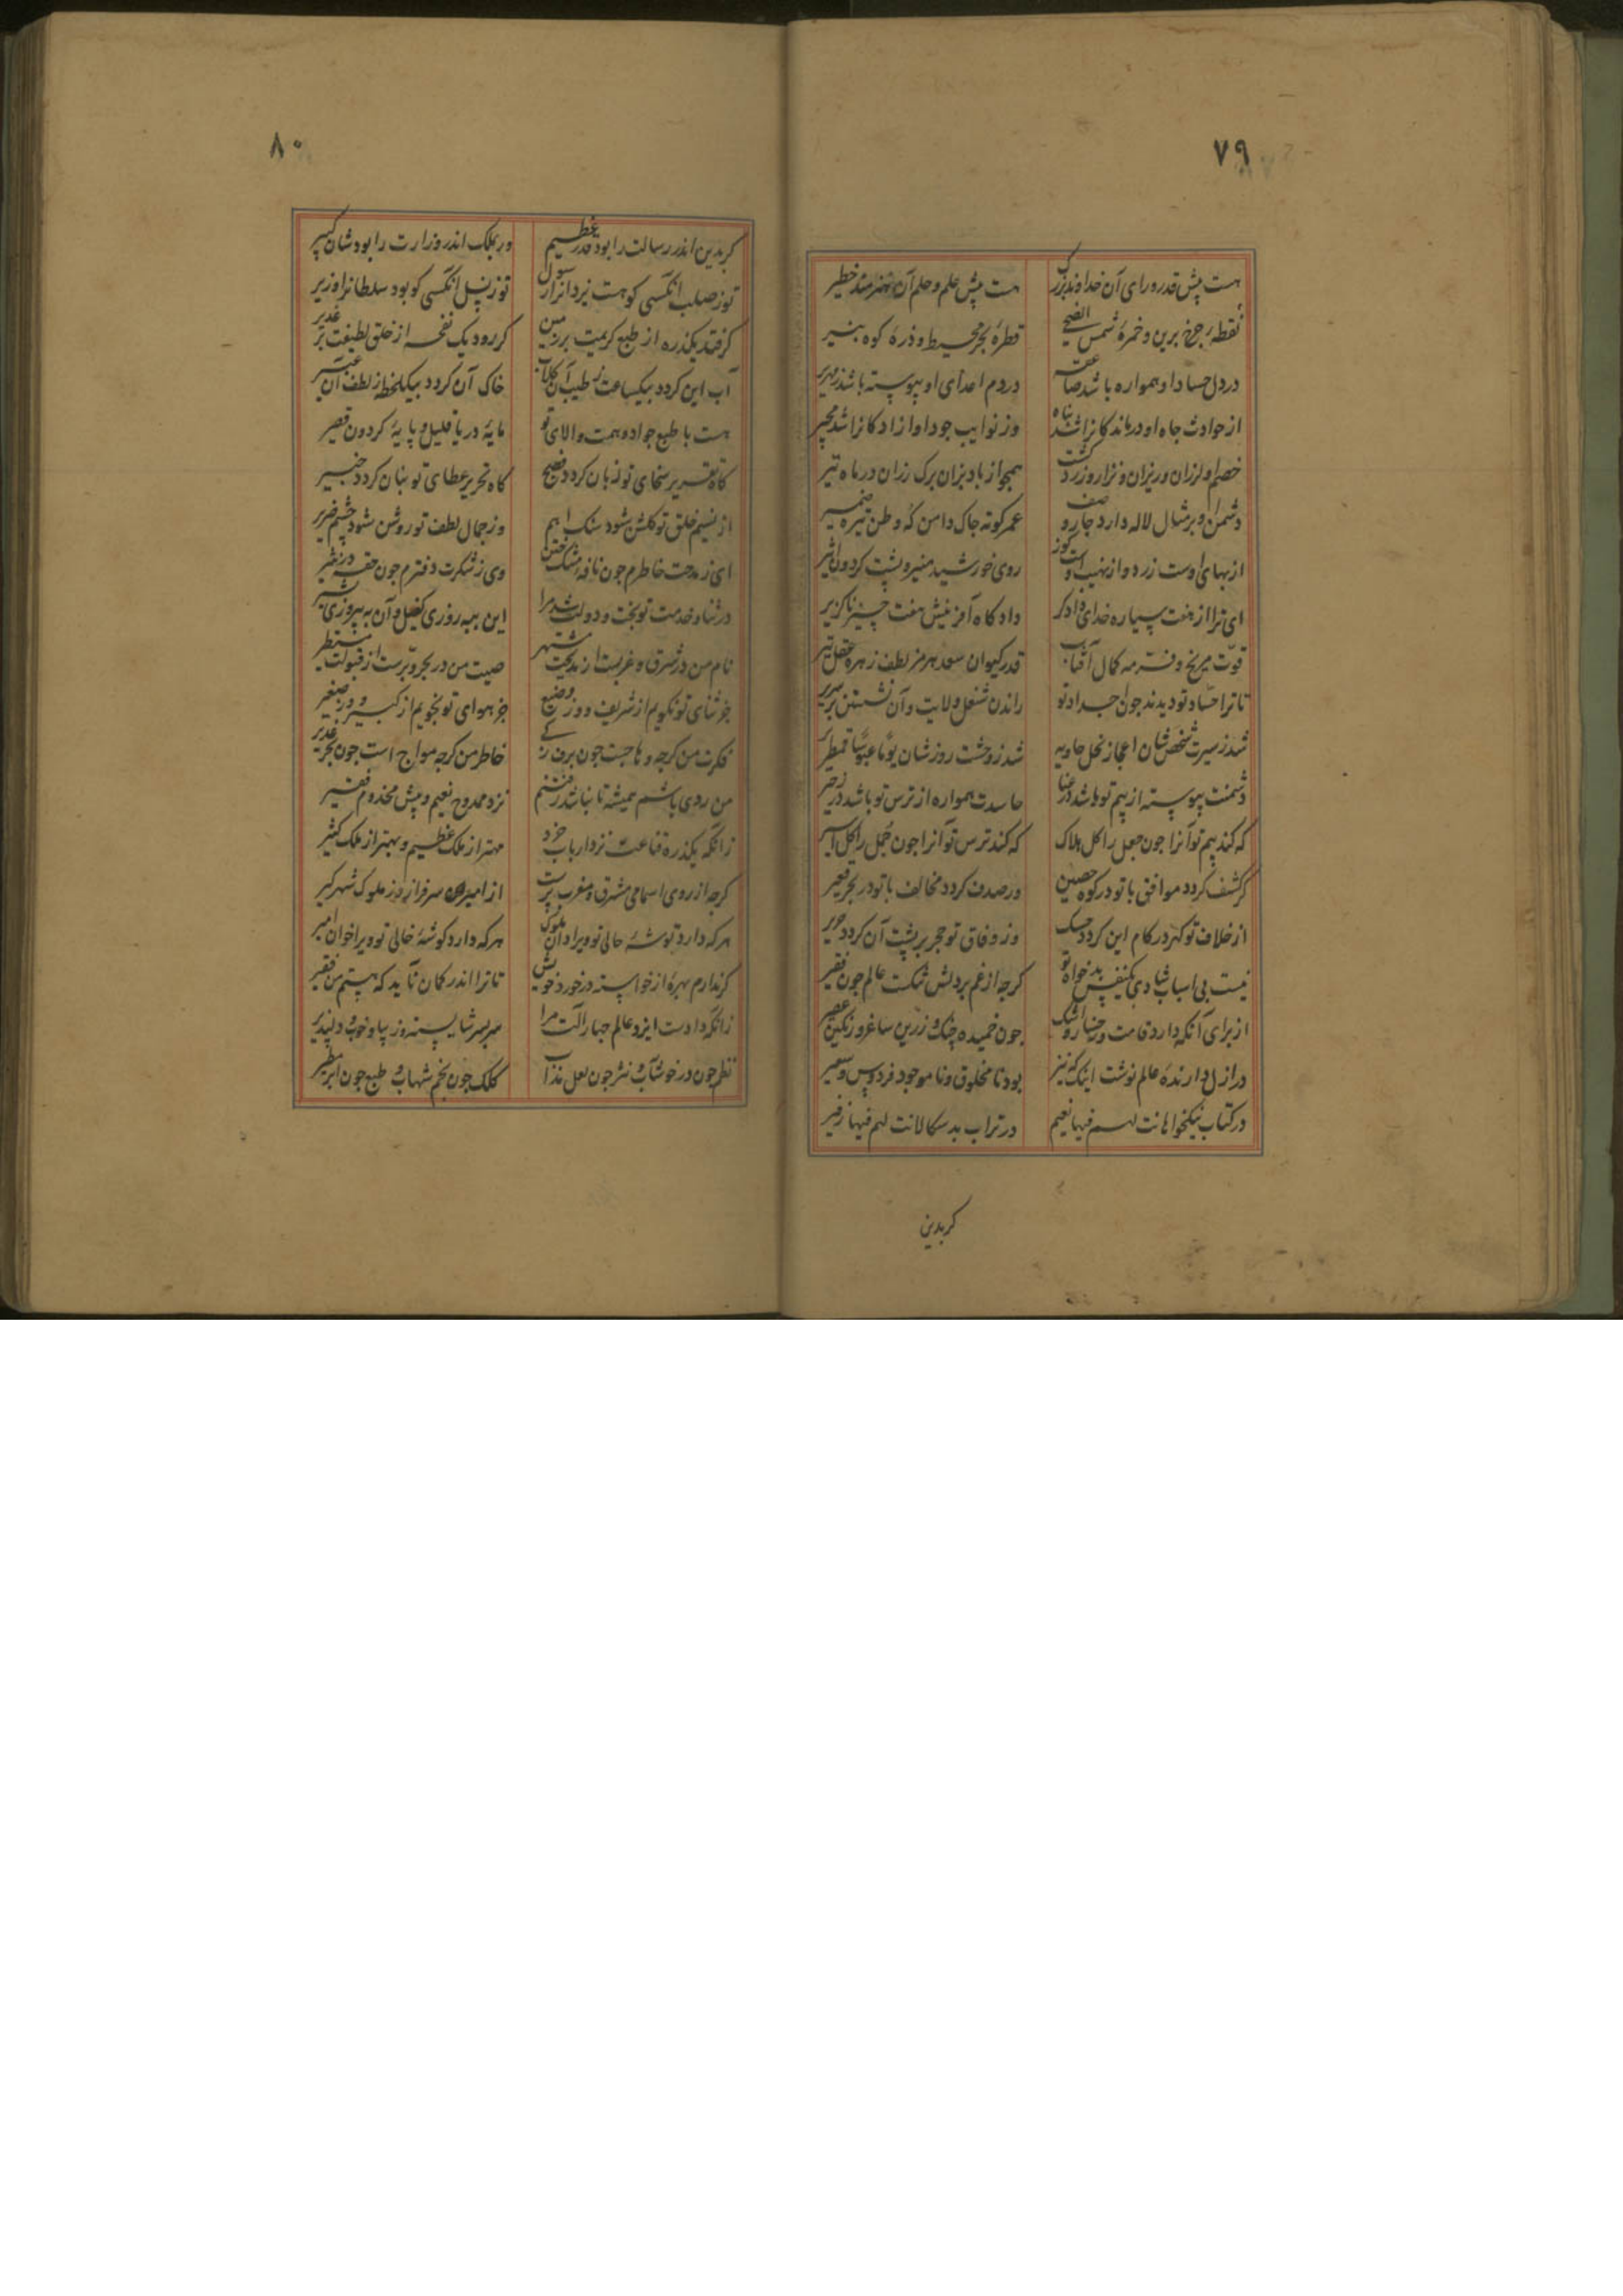 ٧٩
هست پیش قدر و رای آن خداوند بزرک هست پیش علم و حلم آن هنرمند خطیر
نقطهٔ چرخ برین و خمرهٔ شمس الضحی قطرهٔ بحر محیط و ذرهٔ کوه ثبیر
در دل حساد او همواره باشد صاعقه در دم اعدای او پیوسته باشد زمهریر
از حوادث جاه او درماندکانرا شد پناه وز نوایب جود او ازادکانرا شد مجیر
خصم او لرزان و ریزان و نزار و زرد کشت همجو از باد بزان برک رزان در ماه تیر
دشمن او بر مثال لاله دارد جار وصف عمر کوته جاک دامن که وطن تیره ضمیر
از بهای اوست زرد و از نهیب اوست کوز روی خورشید منیر و پشت کردون اثیر
ای ترا از هفت سیاره خدای دادکر داد کاه آفرینش هفت چیز ناکزیر
قوت مریخ و فر مه کمال آفتاب قدر کیوان سعد هرمز لطف زهره عقل تیر
تا ترا حساد تو دیدند جون اجداد تو راندن شغل ولایت و آن نشستن بر سریر
شد ز سیرت شخصشان اعجاز نخل خاویه شد ز وحشت روزشان یوما عبوسا قمطریر
دشمنت پیوسته از بیم تو باشد در عنا حاسدت همواره از ترس تو باشد در زحیر
که کند بیم تو آنرا جون جعل را کل هلاک که کند ترس تو آنرا جون جمل را کل اسیر
کر کشف کردد موافق با تو در کوه حصین ور صدف کردد مخالف با تو در بحر قعیر
از خلاف تو کهر در کام این کردد خسک وز وفاق تو حجر بر پشت آن کردد حریر
نیست بی اسباب شادی یکنفس بدخواه تو کرجه از غم بر دلش تنکست عالم جون فقیر
از برای آنکه دارد قامت و رخسار و اشک جون خمیده چنک و زرین ساغر و رنکین عصیر
در ازل دارندهٔ عالم نوشت اینک که نیز بود نا مخلوق و نا موجود فردوس و سعیر
در کتاب نیکخواهانت لهم فیها نعیم در تراب بدسکالانت لهم فیها زفیر
کر بدین
٨٠
کر بدین اندر رسالت را بود قدر عظیم ور بملک اندر وزارت را بود شان کبیر
تو ز صلب آنکسی کو هست یزدانرا رسول تو ز نسل آنکسی کو بود سلطانرا وزیر
کر فتد یکذره از طبع کریمت بر زمین کر رود یک نفحه از خلق لطیفت بر غدیر
آب این کردد بیکساعت ز طیب آن کلاب خاک آن کردد بیکلحظه ز لطف آن عبیر
هست با طبع جواد و همت والای تو مایهٔ دریا قلیل و پایهٔ کردون قصیر
کاه تقریر سخای تو زبان کردد فصیح کاه تحریر عطای تو بنان کردد خبیر
از نسیم خلق تو کلشن شود سنک اصم وز جمال لطف تو روشن شود چشم ضریر
ای ز مدحت خاطرم جون نافهٔ مشک ختن وی ز شکرت دفترم جون حقهٔ در نثیر
در ثنا و خدمت تو بخت و دولت شد مرا این ببهروزی کفیل و آن بپیروزی بشیر
نام من در شرق و غربست از مدیحت مشتهر صیت من در بحر و برست از قبولت مستطیر
جز ثنای تو نکویم از شریف و وز وضیع جز هوای تو نجویم از کبیر و وز صغیر
فکرت من کرجه وهاجست جون برق ز کی خاطر من کرجه مواج است جون بحر غدیر
من روی باشم همیشه تا نباشد نزد ممدوح نعیم و پیش مخدوم فقیر
زانکه یکذره قناعت نزد ارباب خرد مهتر از ملک عظیم و بهتر از ملک کثیر
کرجه از روی اسامی مشرق و مغرب پرست از امیران سرفراز و ز ملوک شهرکیر
هر که دارد توشهٔ حالی تو ویرا دان ملوک هر که دارد کوشهٔ خالی تو ویرا خوان امیر
کر ندارم بهرهٔ از خواسته در خورد خویش تا ترا اندر کمان ناید که هستم من فقیر
زانکه دادست ایزد عالم جهار آلت مرا سربسر شایسته و زیبا و خوب و دلپذیر
نظم جون در خوشاب و نثر جون لعل مذاب کلک جون نجم شهاب و طبع جون ابر مطیر